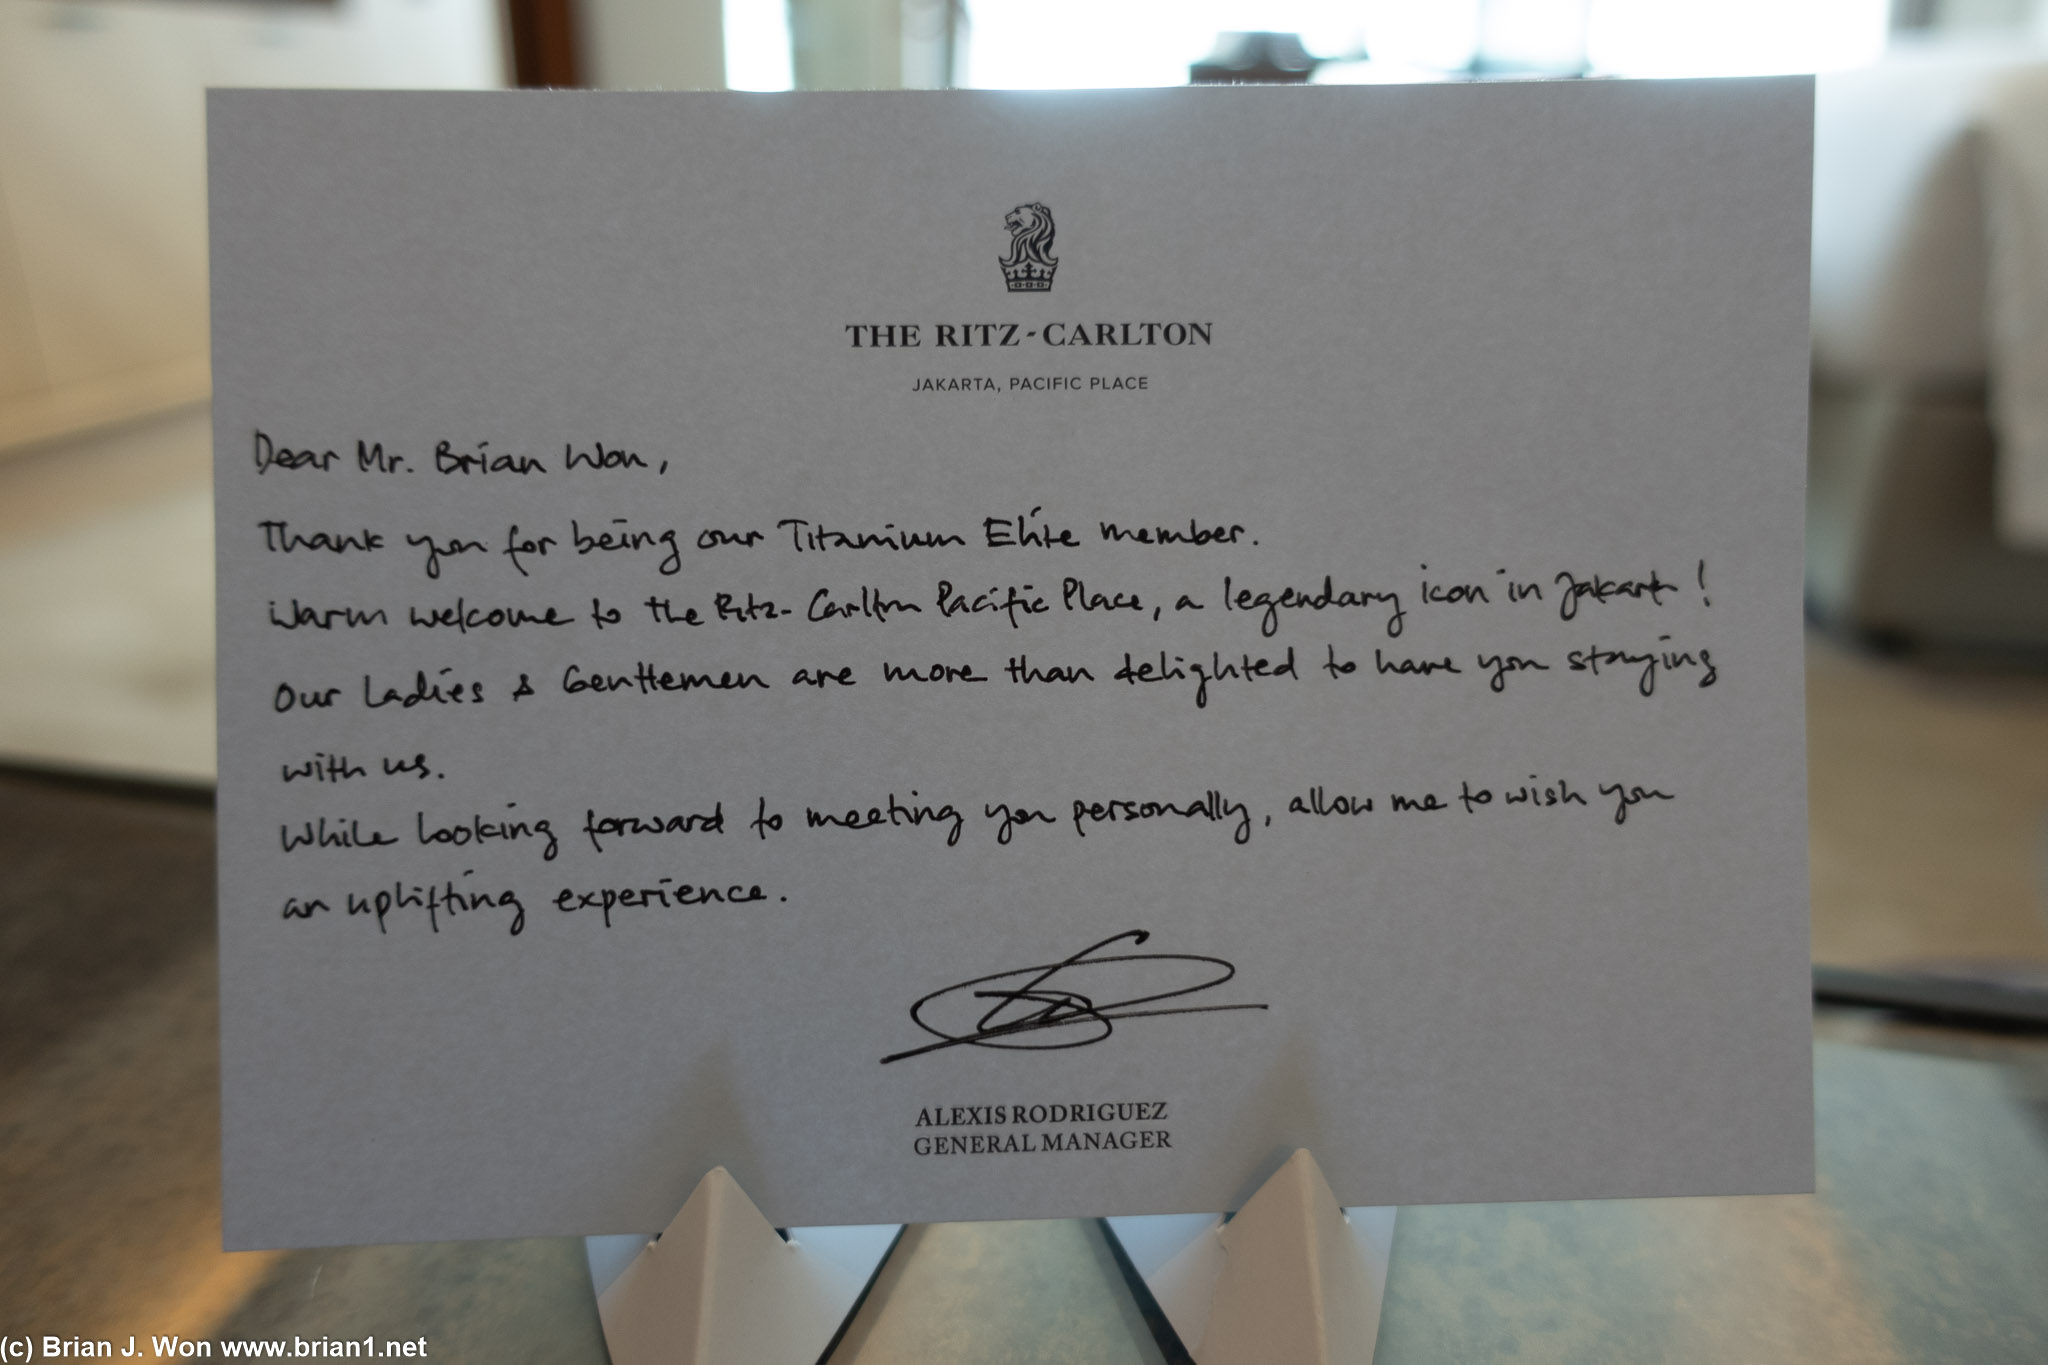 THE RITZ-CARLTON
JAKARTA, PACIFIC PLACE
Dear Mr. Brian Won,
Thank you for being our Titanium Elite member.
Warm welcome to the Ritz-Carlton Pacific Place, a legendary icon in Jakarta!
Our Ladies & Gentlemen are more than delighted to have you staying
with us.
While looking forward to meeting you personally, allow me to wish you
an uplifting experience.
ALEXIS RODRIGUEZ
GENERAL MANAGER
(c) Brian J. Won www.brian1.net